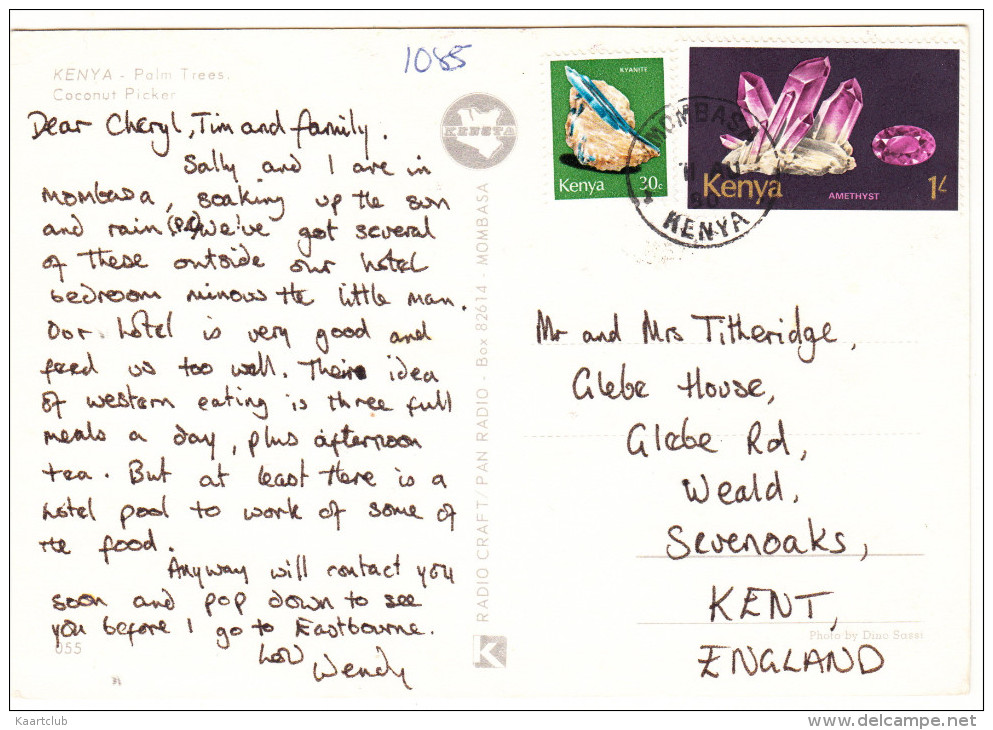 1085
KENYA - Palm Trees.
Coconut Picker
Dear Cheryl, Tim and family.
Sally and I are in
Mombasa, soaking up the sun
and rain We've got several
of these outside our hotel
bedroom minous the little man.
Our hotel is very good and
feed us too well. Their idea
of western eating is three full
meals a day, plus afternoon
tea. But at least there is a
hotel pool to work of some of
the food.
Anyway will contact you
soon and pop down to see
you before I go to Eastbourne.
Wendy
055
KENSTA
RADIO CRAFT/PAN RADIO - Box 82614 - MOMBASA
K
KYANITE
Kenya 30c
Kenya AMETHYST 1/-
MOMBASA
KENYA
Mr and Mrs Titheridge,
Glebe House,
Glebe Rd,
Weald,
Sevenoaks,
KENT,
Photo by Dino Sassi
ENGLAND
Kaartclub
www.delcampe.net